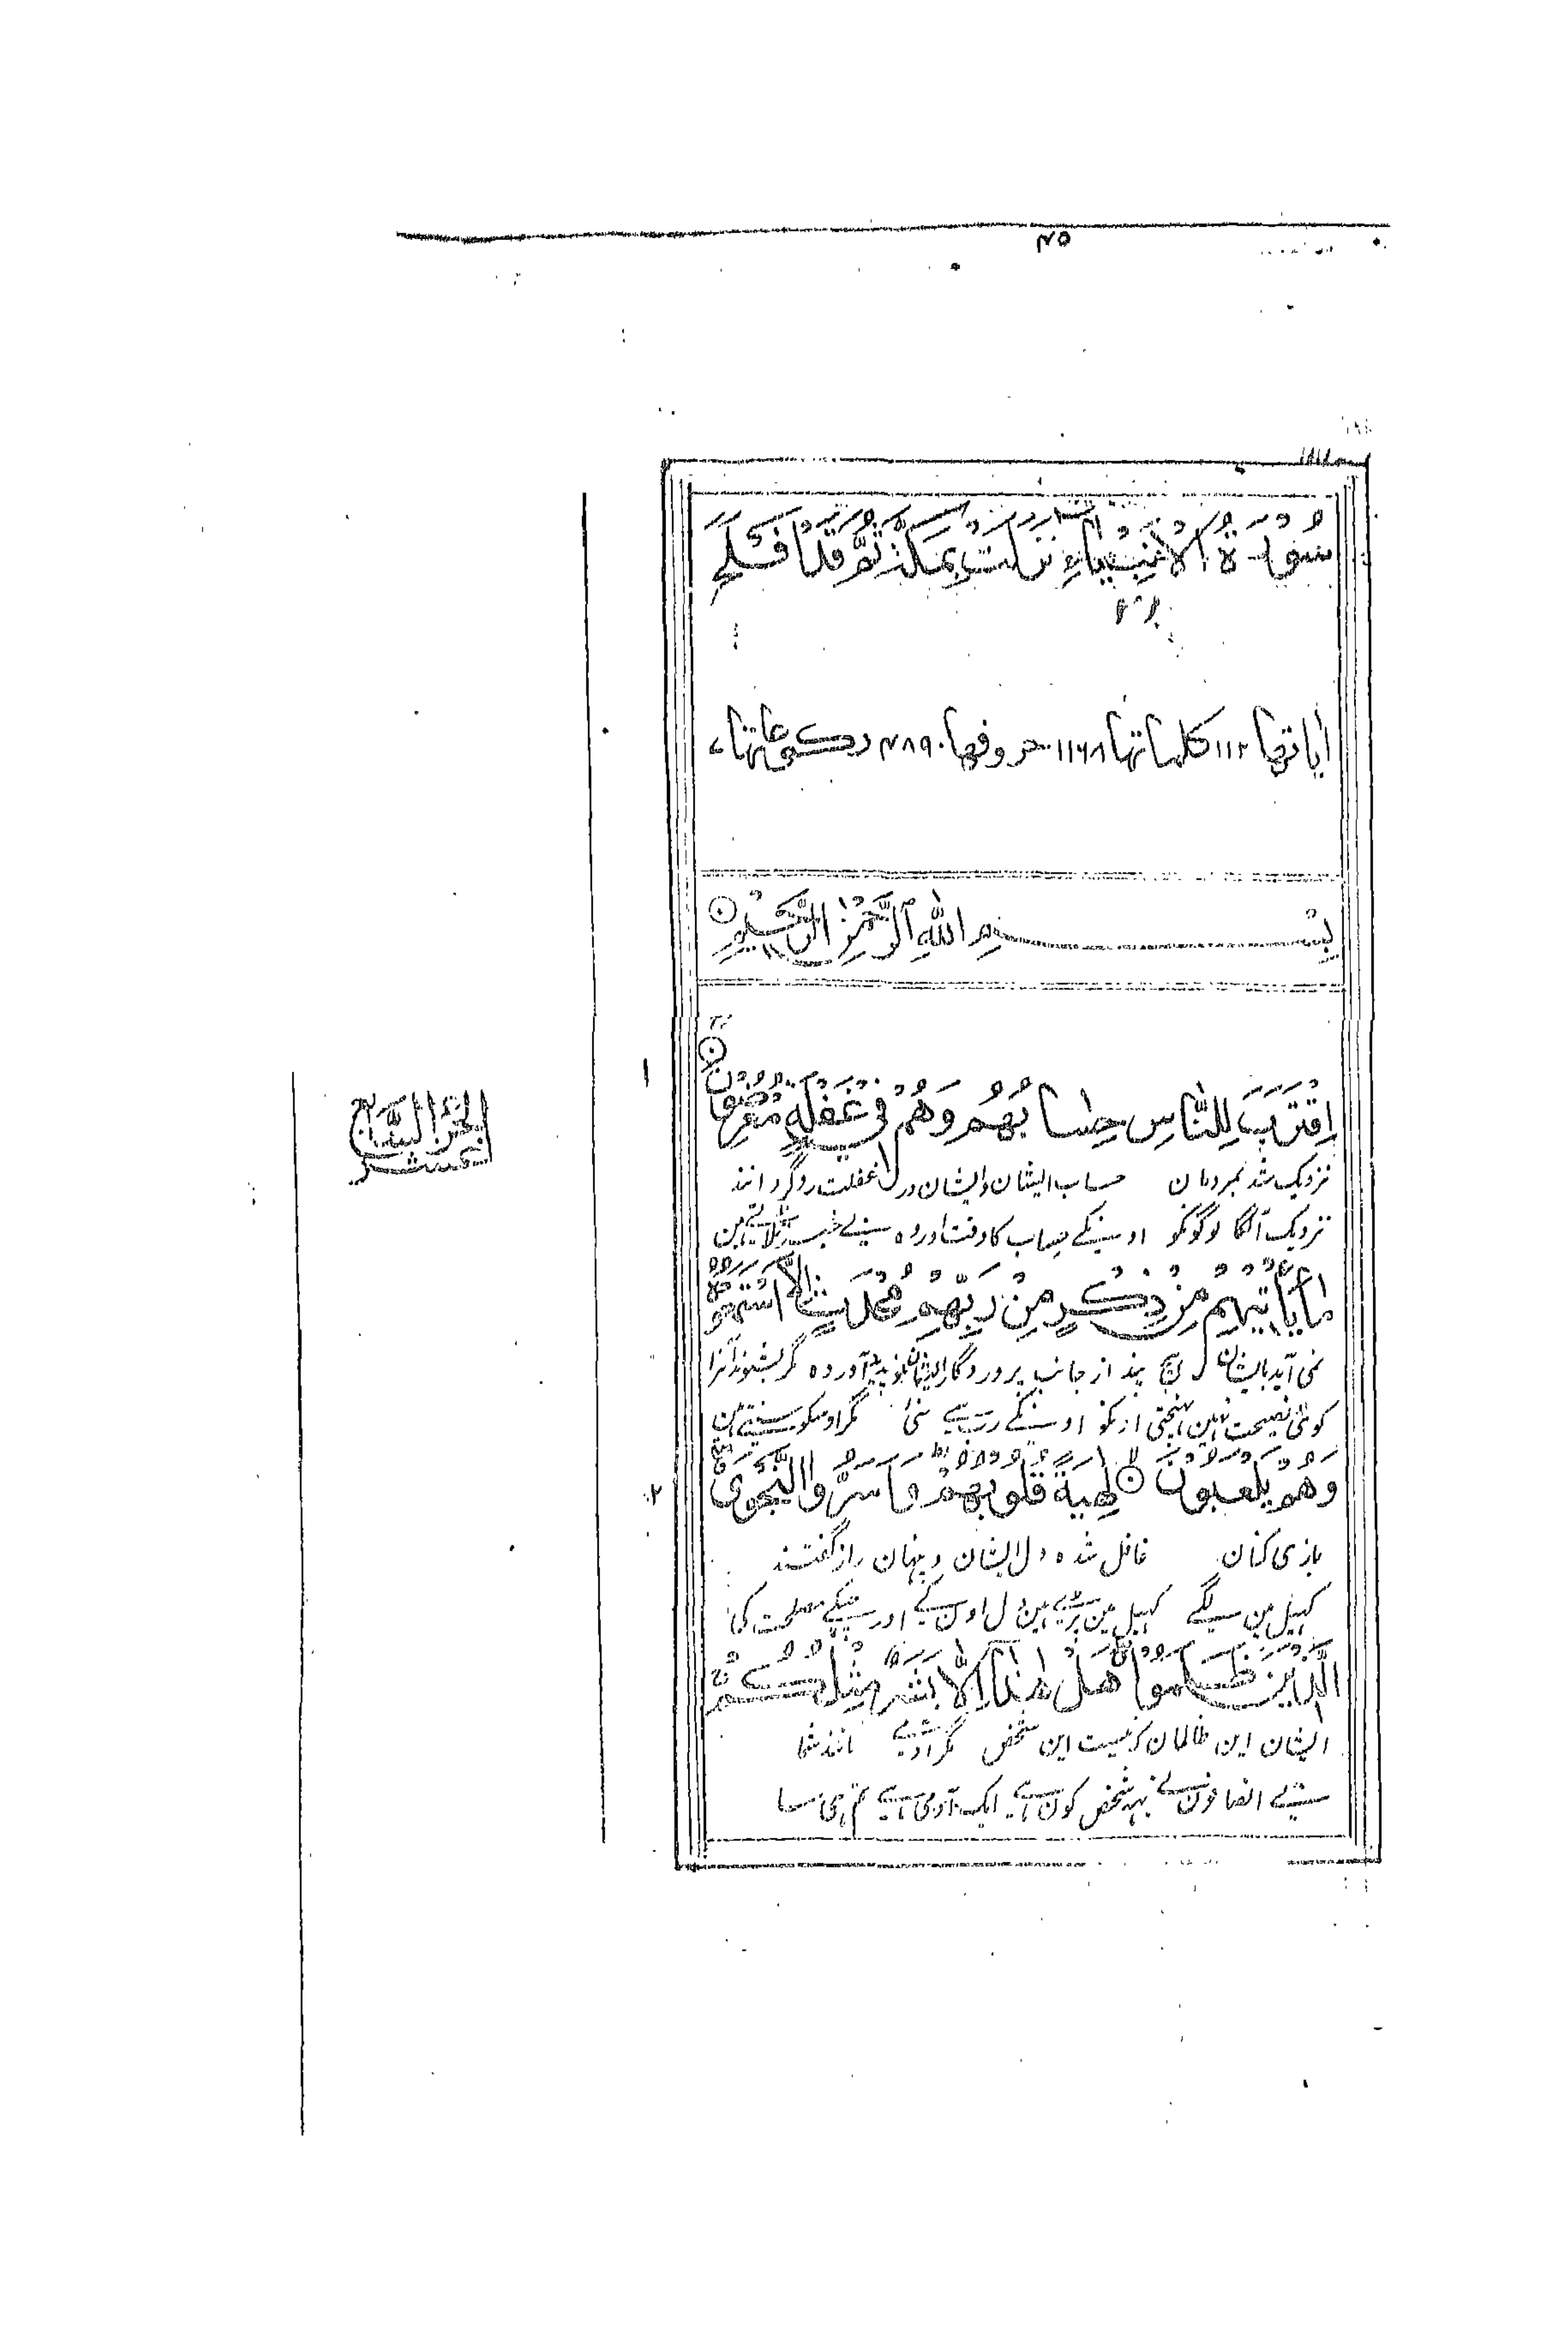 ۴۵
سُوْرَةُ الْاَنْبِيَاءِ نَزَلَتْ بِمَكَّةَ ثُمَّ
اياتها ۱۱۲ كلماتها ۱۱۶۸ حروفها ۴۸۹۰ ركوعاتها ۷
بِسْمِ اللّٰهِ الرَّحْمٰنِ الرَّحِيْمِ
۱
اِقْتَرَبَ لِلنَّاسِ حِسَابُهُمْ وَهُمْ فِيْ غَفْلَةٍ مُّعْرِضُوْنَ
الجزء السابع عشر
نزدیک شد بمردمان حساب ایشان و ایشان در غفلت رو گردانند
نزدیک آلگا لوگونکو اونکے حساب کا وقت اور وہ بے خبر ٹلاتے ہین
مَا يَأْتِيْهِمْ مِّنْ ذِكْرٍ مِّنْ رَّبِّهِمْ مُّحْدَثٍ اِلَّا اسْتَمَعُوْهُ
نمی آید بایشان ہیچ پند از جانب پروردگار ایشان نو پدید آورده مگر بشنوند آنرا
کوئی نصیحت نہین پہنچتی انکو اونکے رب سے نئی مگر اوسکو سنتے ہین
وَهُمْ يَلْعَبُوْنَ لَاهِيَةً قُلُوْبُهُمْ وَاَسَرُّوا النَّجْوَى
۲
بازی کنان غافل شده دل ایشان و پنهان راز گفتند
کهیل مین لگے کهیل مین پڑے ہین دل اون کے اور چپکے مصلحت کی
الَّذِيْنَ ظَلَمُوْا هَلْ هٰذَا اِلَّا بَشَرٌ مِّثْلُكُمْ
ایشان این ظالمان که نیست این شخص مگر آدمی مانند شما
بے انصافون نے یہہ شخص کون ہے ایک آدمی ہے تم ہی سا